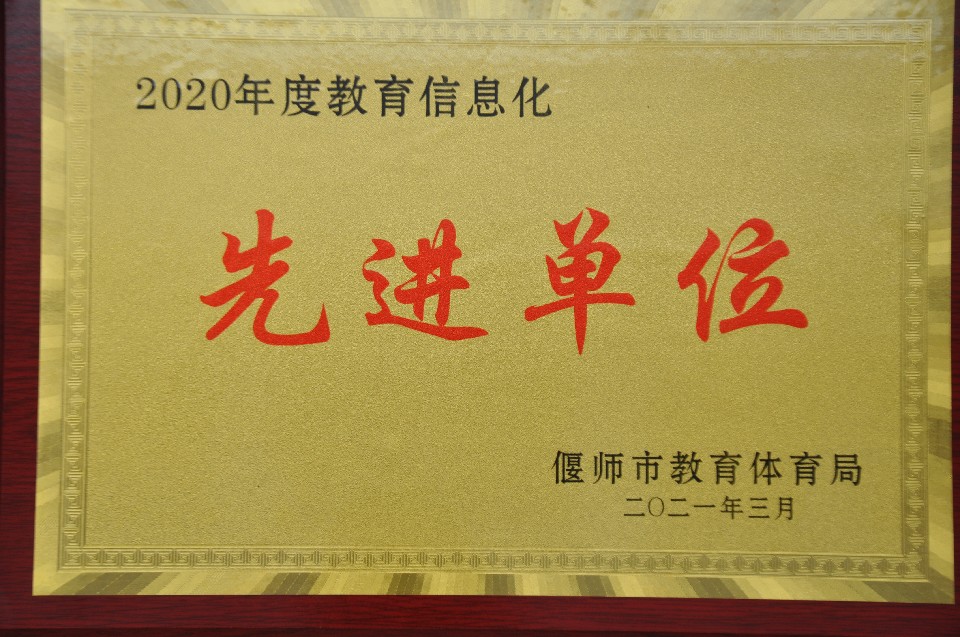 2020年度教育信息化
先进单位
偃师市教育体育局
二〇二一年三月